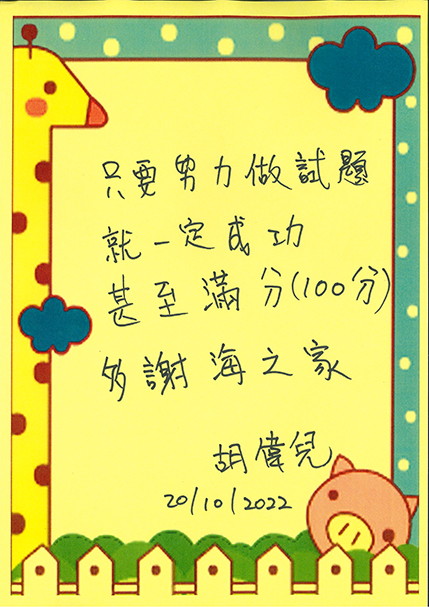 只要努力做試題
就一定成功
甚至滿分(100分)
多謝海之家
胡偉兒
20/10/2022